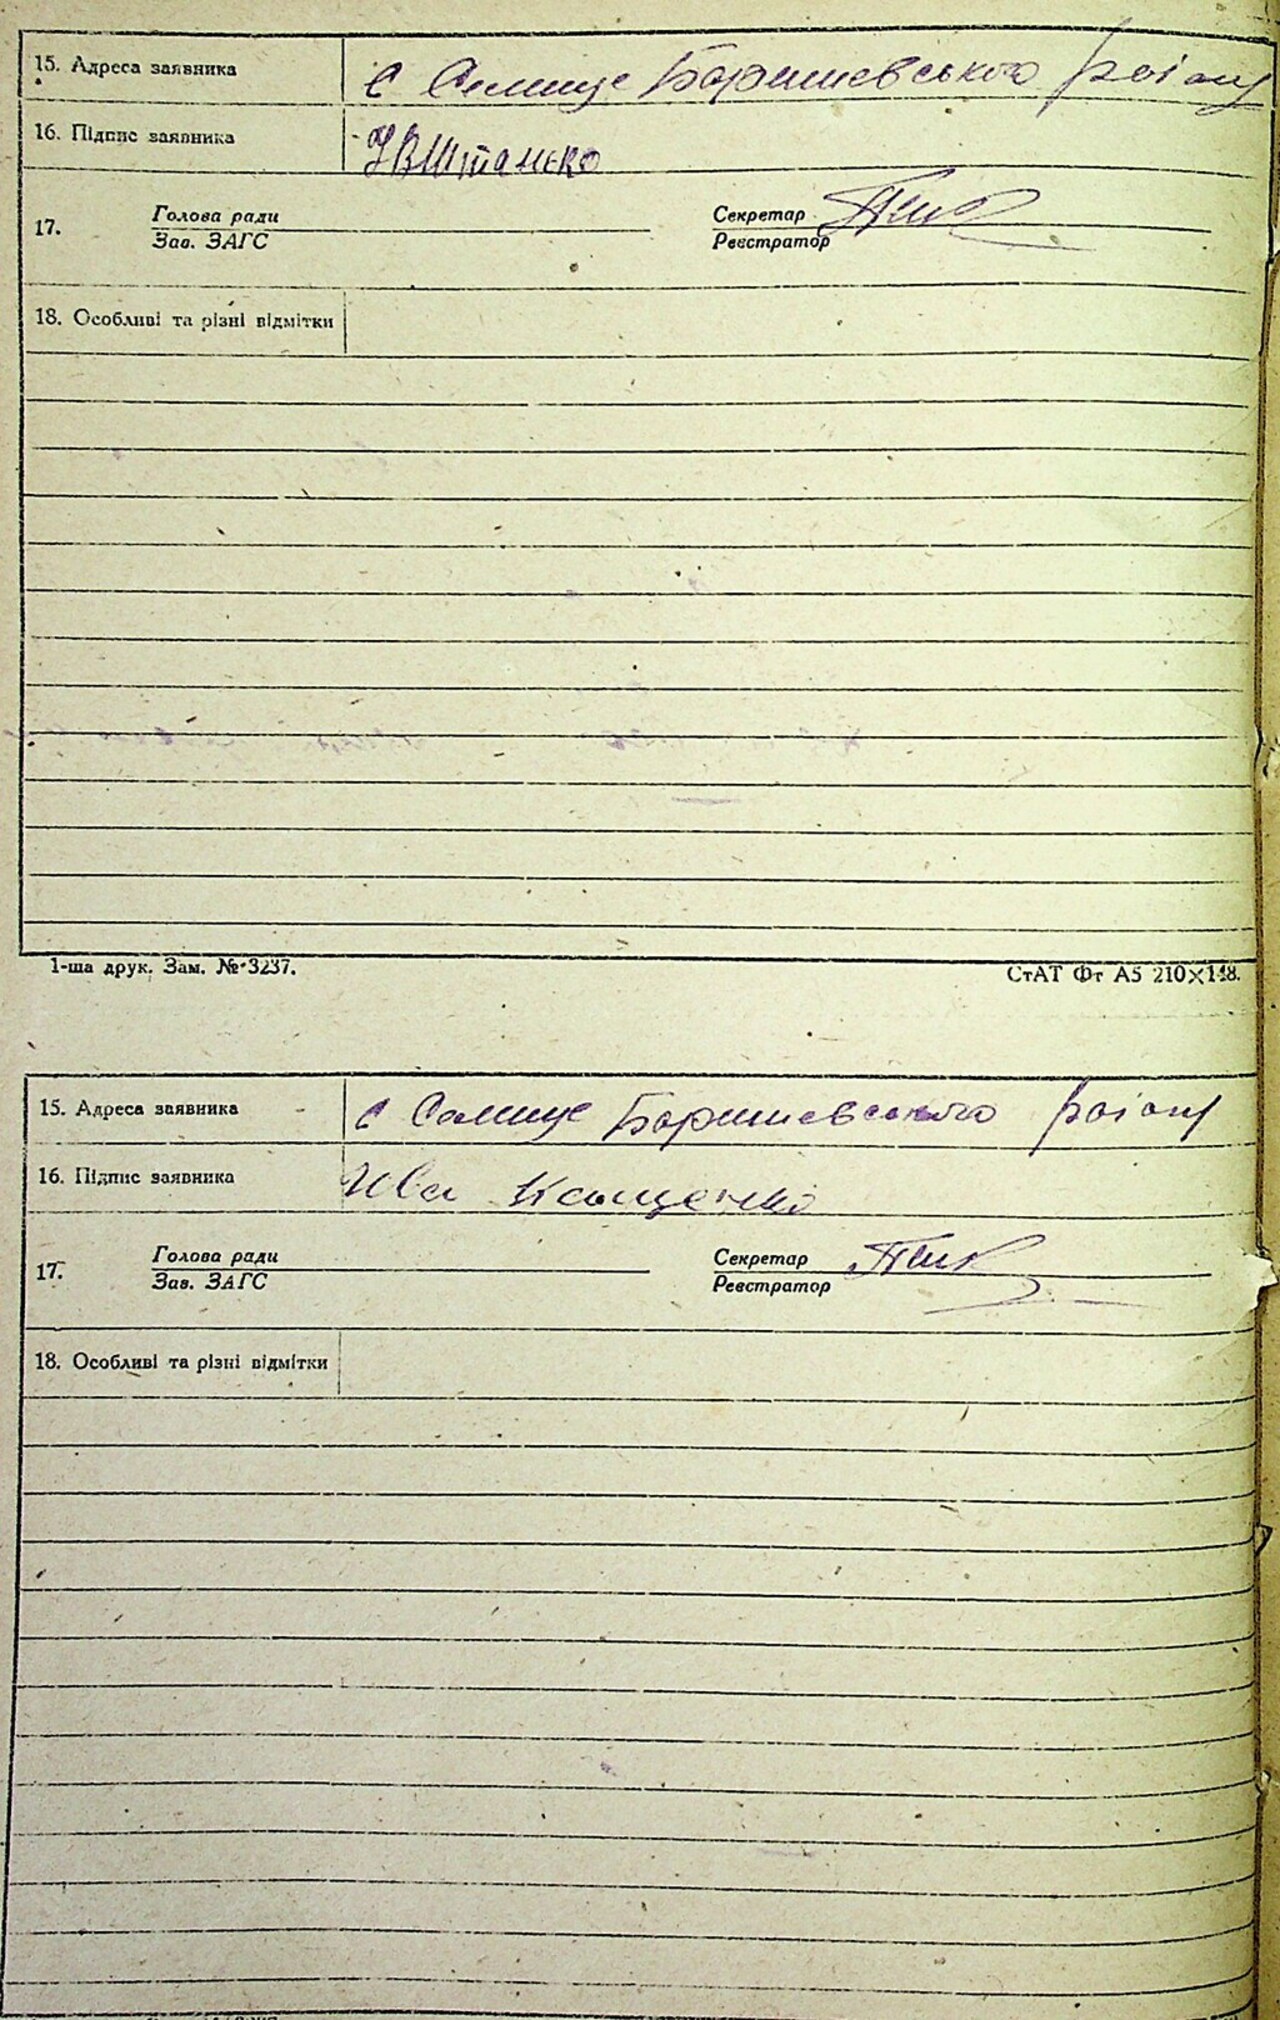 15. Адреса заявника с Селище Баришевського району
16. Підпис заявника УВШтанько
17. Голова ради Секретар
Зав. ЗАГС Реєстратор
18. Особливі та різні відмітки
1-ша друк. Зам. № 3237. СтАТ Фт А5 210×148.
15. Адреса заявника с Селище Баришевського району
16. Підпис заявника
17. Голова ради Секретар
Зав. ЗАГС Реєстратор
18. Особливі та різні відмітки